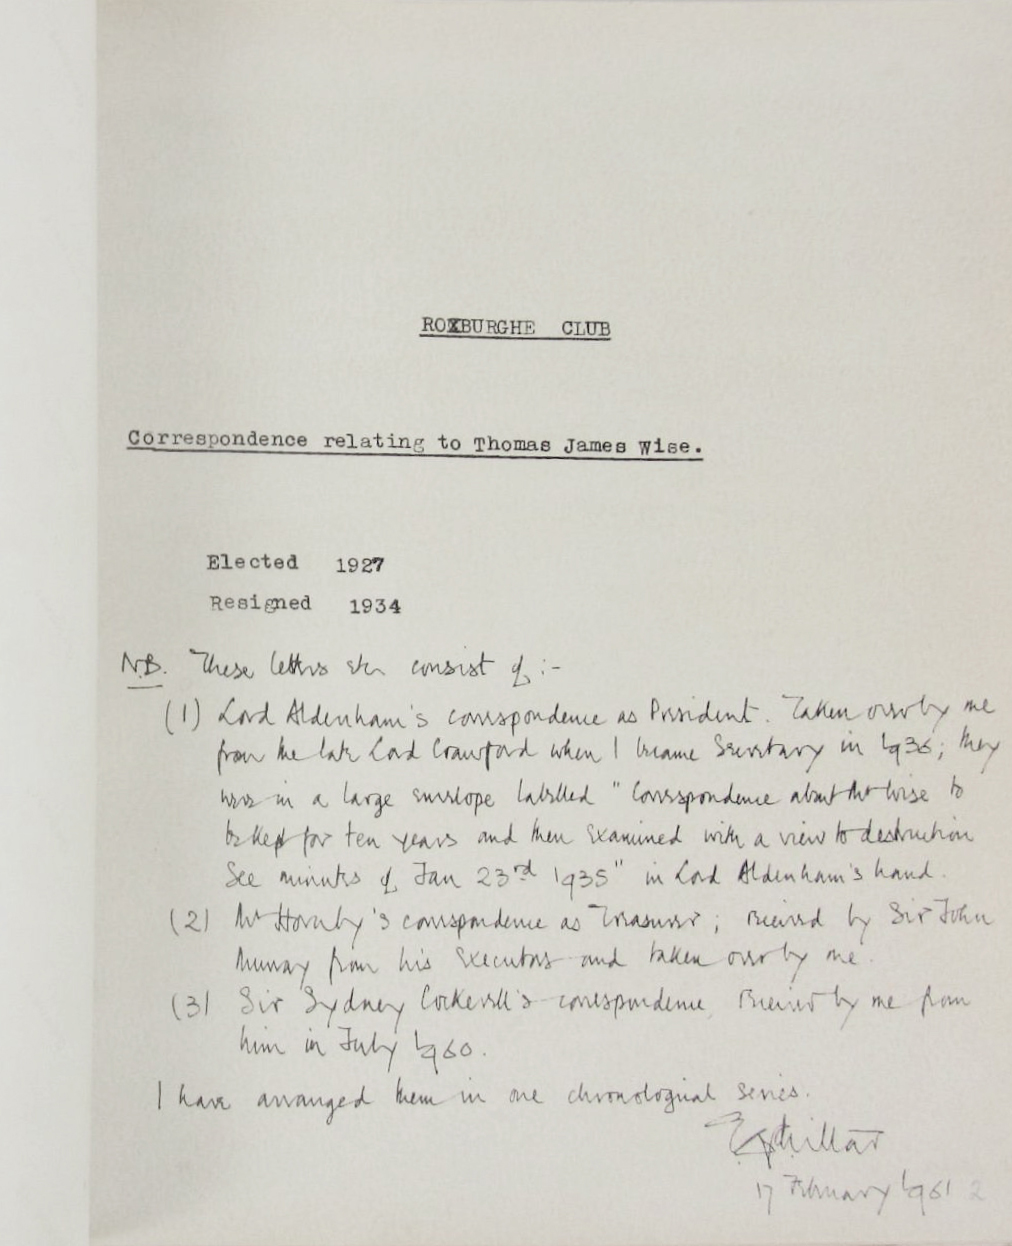 ROXBURGHE CLUB
Correspondence relating to Thomas James Wise.
Elected 1927
Resigned 1934
N.B. These letters etc consist of :-
(1) Lord Aldenham's correspondence as President. Taken over by me
from the late Lord Crawford when I became Secretary in 1936; they
were in a large envelope labelled "Correspondence about Mr Wise to
be kept for ten years and then examined with a view to destruction
See minutes of Jan 23rd 1935" in Lord Aldenham's hand.
(2) Mr Hornby's correspondence as Treasurer; received by Sir John
Murray from his Executors and taken over by me.
(3) Sir Sydney Cockerell's correspondence, Received by me from
him in July 1960.
I have arranged them in one chronological series.
Millar
17 February 1961 2